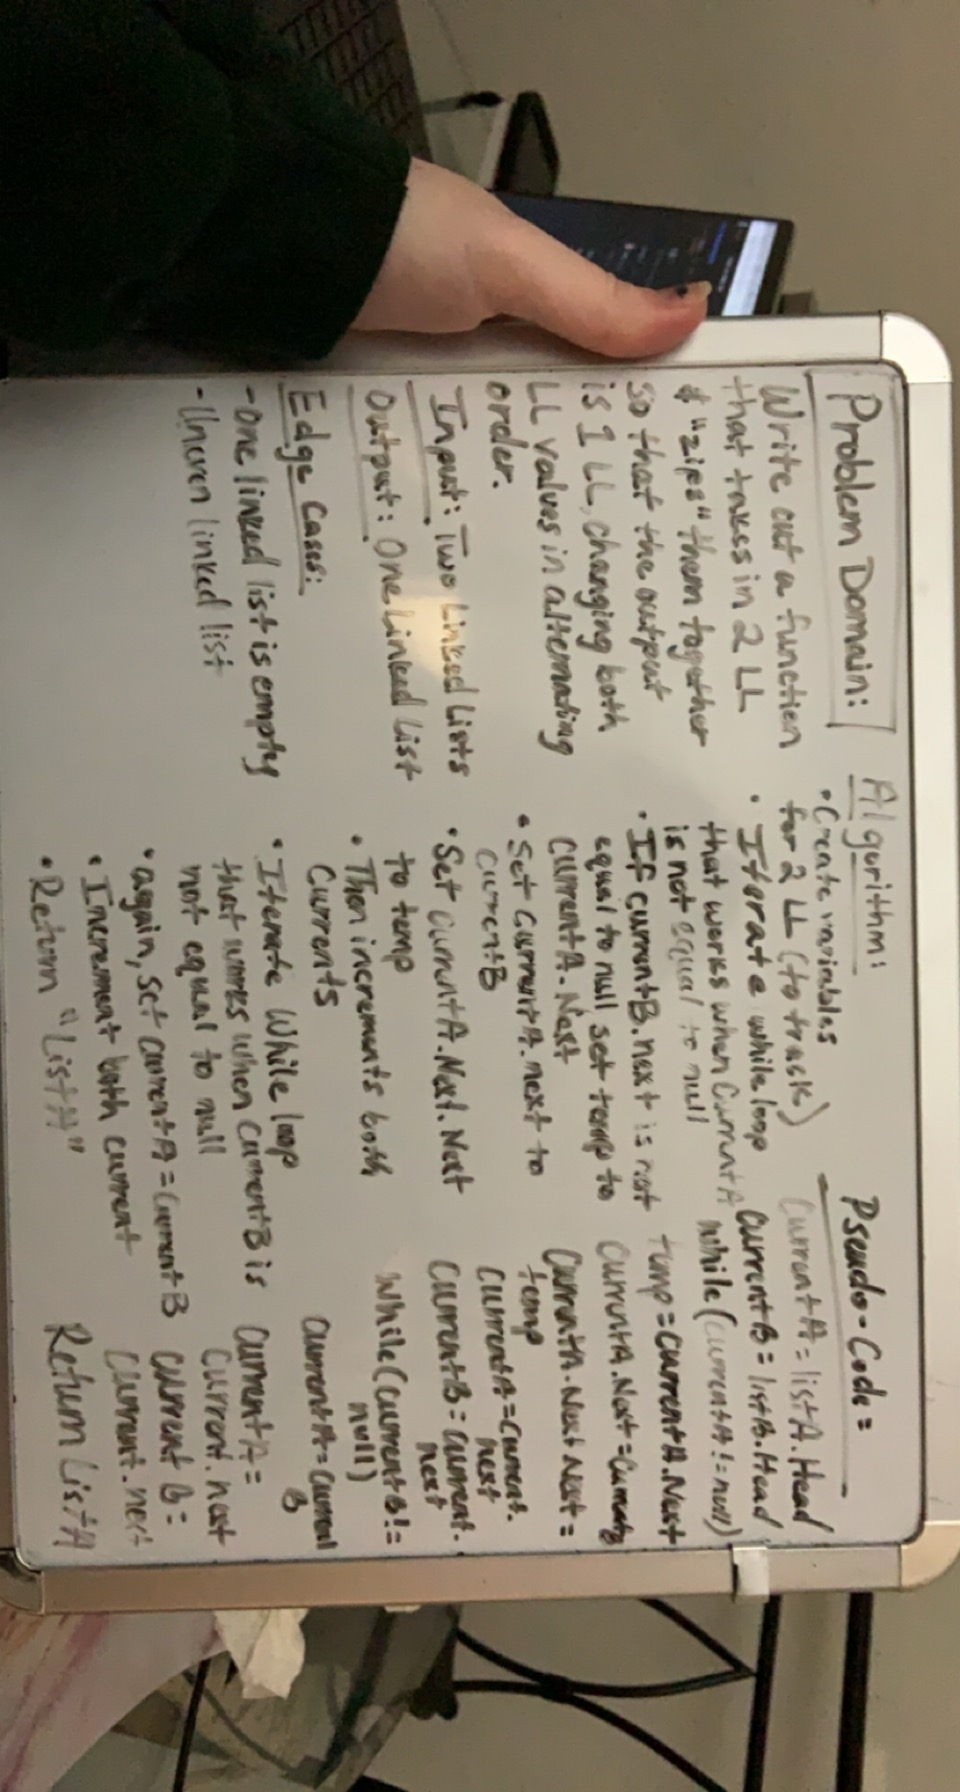 Problem Domain:
Write out a function
that takes in 2 LL
& "zips" them together
so that the output
is 1 LL, changing both
LL values in alternating
order.
Input: Two Linked Lists
Output: One Linked List
Edge Cases:
- One linked list is empty
- Uneven linked list
Algorithm:
• Create variables
for 2 LL (to track)
• Iterate while loop
that works when CurrentA
is not equal to null
• If currentB.next is not
equal to null, set temp to
currentA.Next
• Set CurrentA.next to
currentB
• Set currentA.Next.Next
to temp
• Then increments both
Currents
• Iterate While loop
that works when CurrentB is
not equal to null
• again, set currentA = CurrentB
• Increment both current
• Return "ListA"
Pseudo-Code=
CurrentA = listA.Head
CurrentB = listB.Head
while (currentA != null)
temp = CurrentA.Next
CurrentA.Next = CurrentB
CurrentA.Next.Next =
temp
CurrentA = Current.
next
CurrentB = current.
next
While (currentB !=
null)
CurrentA = Current
B
CurrentA =
Current.next
Current B =
Current.next
Return ListA